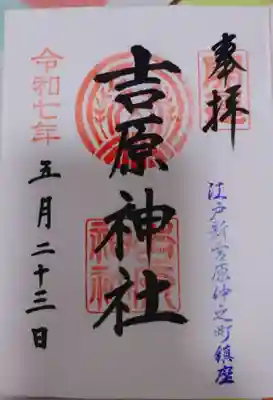 奉拝
江戸新吉原仲之町鎮座
吉原神社
令和七年
五月二十三日